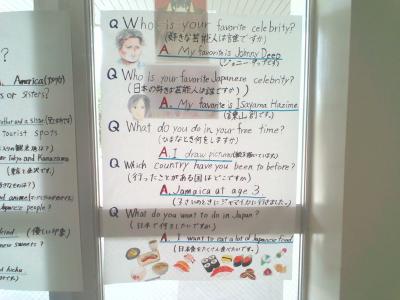 Q Who is your favorite celebrity?
(好きな芸能人は誰ですか)
A. My favorite is Johnny Deep
(ジョニー・デップです)
Q Who is your favorite Japanese celebrity?
(日本の好きな芸能人は誰ですか)
A. My favorite is Isayama Hazime
Q What do you do in your free time?
(ひまなとき何をしますか)
A. I draw pictures
Q Which country have you been to before?
(行ったことがある国はどこですか)
A. Jamaica at age 3
(3さいのときにジャマイカに行きました。)
Q What do you want to do in Japan?
(日本で何をしたいですか)
A. I want to eat a lot of Japanese food.
(日本食をたくさん食べたいです。)
?
America
or sisters?
Tourist spots
Tokyo and Kanazawa
Japanese people?
kind. (優しい印象)